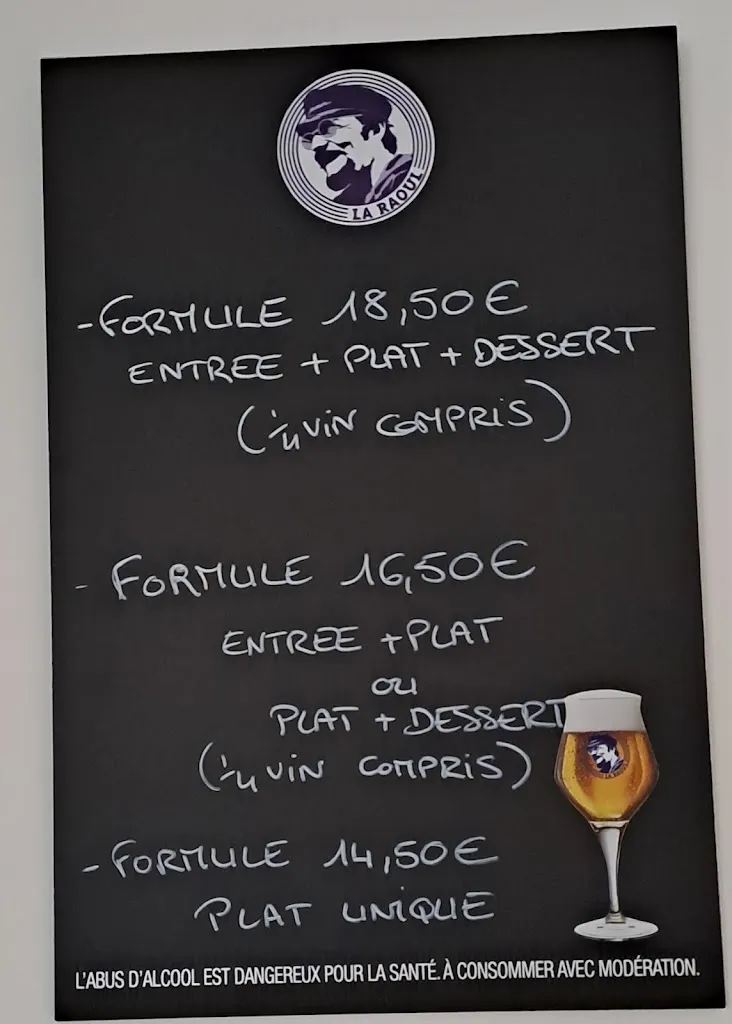 LA RAOUL
- FORMULE 18,50€
ENTREE + PLAT + DESSERT
(1/4 VIN COMPRIS)
- FORMULE 16,50€
ENTREE + PLAT
OU
PLAT + DESSERT
(1/4 VIN COMPRIS)
- FORMULE 14,50€
PLAT UNIQUE
L'ABUS D'ALCOOL EST DANGEREUX POUR LA SANTÉ. À CONSOMMER AVEC MODÉRATION.